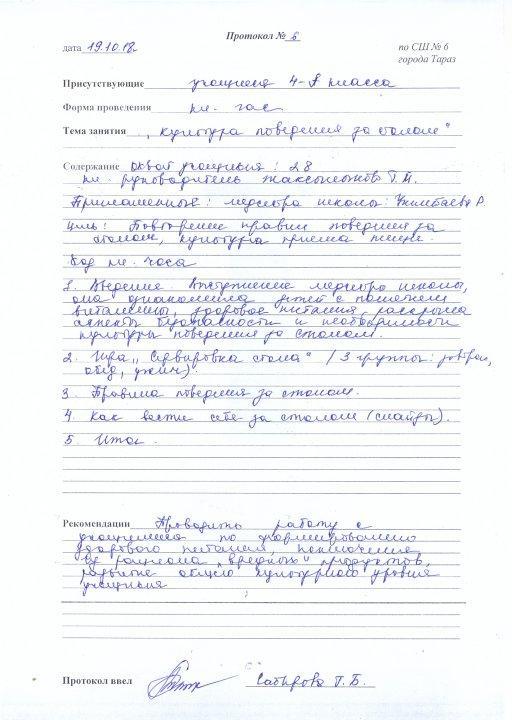 Протокол № 6
дата 19.10.18г.
по СШ № 6
города Тараз
Присутствующие учащиеся 4-"" класса
Форма проведения кл. час
Тема занятия „Культура поведения за столом"
Содержание охват учащихся: 28
кл. руководитель Г.И.
Приглашенные: медсестра школы: Р.
Цель: Повторение правил поведения за
столом, культура приема пищи.
Ход кл. часа
1. Введение. Выступление медсестра школы,
она ознакомила детей с понятием
витамины, здоровое питание, раскрыла
аспекты безопасности и необходимости
культуры поведения за столом.
2. Игра „Сервировка стола" / 3 группы: завтрак,
обед, ужин).
3. Правила поведения за столом.
4. Как вести себя за столом (слайды).
5. Итог.
Рекомендации Проводить работу с
учащимися по формированию
здорового питания, исключение
из рациона „вредных" продуктов,
развитие общего культурного уровня
учащихся
Протокол ввел Сабырова Г. Б.